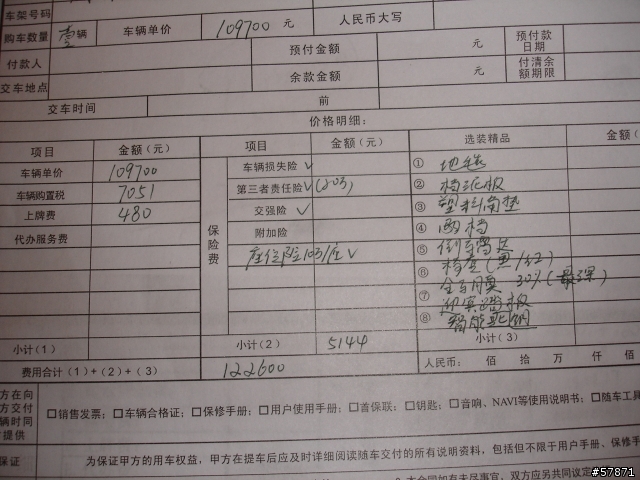 车架号码
购车数量 壹辆 车辆单价 109700 元 人民币大写
付款人 预付金额 元 预付款日期
交车地点 余款金额 元 付清余额期限
交车时间 前
价格明细:
项目 金额(元) 项目 金额(元) 选装精品 金额(
车辆单价 109700 车辆损失险 ✓ ① 地毯
车辆购置税 7051 第三者责任险 ✓ ② 档泥板
上牌费 480 交强险 ✓ ③ 塑料脚垫
代办服务费 附加险 ④ 雨档
保险费 座位险10万/座 ✓ ⑤
⑥
⑦
⑧
小计(1) 小计(2) 5144 小计(3)
费用合计(1)+(2)+(3) 122600 人民币: 佰 拾 万 仟 佰
方在向
方交付 □销售发票; □车辆合格证; □保修手册; □用户使用手册; □首保联; □钥匙; □音响、NAVI等使用说明书; □随车工具
辆时同
提供
保证 为保证甲方的用车权益,甲方在提车后应及时详细阅读随车交付的所有说明资料,包括但不限于用户手册、保修手
本合同如有未尽事宜,双方应另共同议定
#57871